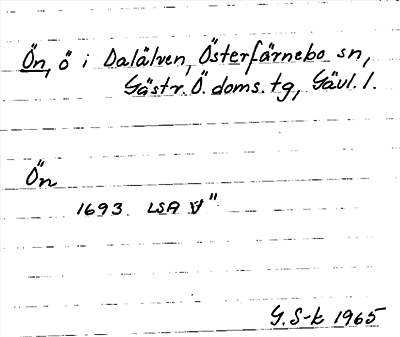 Ön, ö i Dalälven, Österfärnebo sn,
Gästr. Ö. doms. tg, Gävl. l.
Ön
1693 LSA
G. S-k 1965